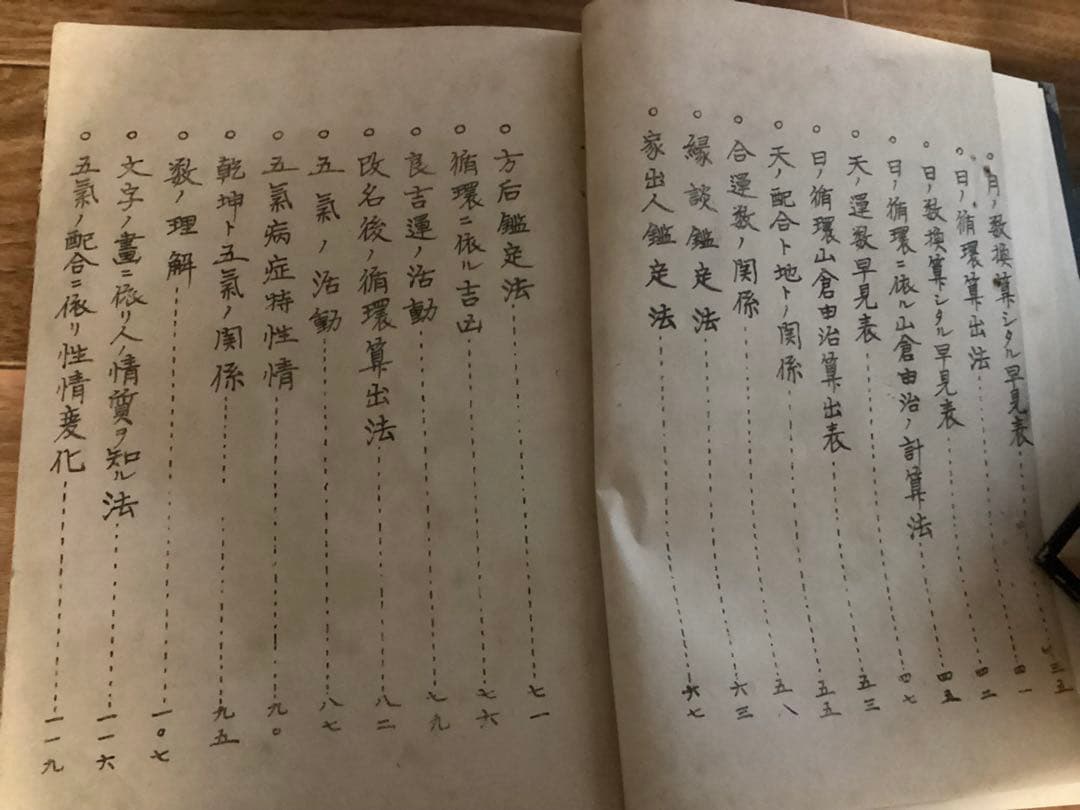 ○月ノ数換算シタル早見表…三五
○日ノ循環算出法…四一
○日ノ数換算シタル早見表…四二
○日ノ循環ニ依ル山倉由治ノ計算法…四五
○天ノ運数早見表…四七
○日ノ循環山倉由治算出表…五三
○天ノ配合ト地トノ関係…五五
○合運数ノ関係…五八
○縁談鑑定法…六三
○家出人鑑定法…六七
○方后鑑定法…七一
○循環ニ依ル吉凶…七六
○良吉運ノ活動…七九
○改名後ノ循環算出法…八二
○五氣ノ活動…八七
○五氣病症特性情…九〇
○乾坤ト五氣ノ関係…九五
○数ノ理解…一〇七
○文字ノ畫ニ依リ人ノ情質ヲ知ル法…一一六
○五氣ノ配合ニ依リ性情変化…一一九